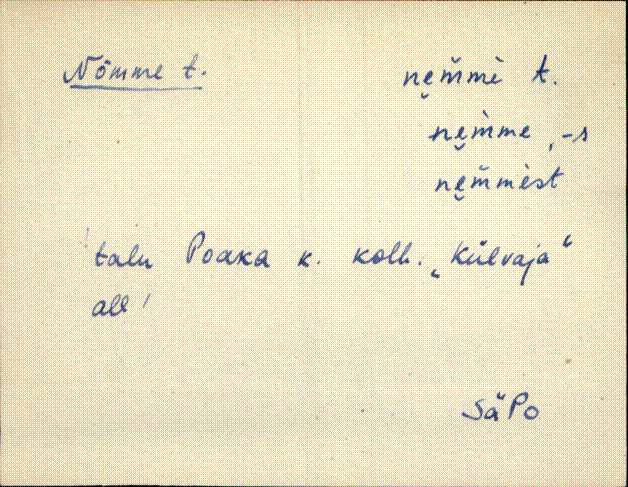 Nõmme t.
ne̮m̆mè t.
ne̮m̀me, -s
ne̮m̆mèst
talu Poaka k. kolh. „Külvaja“
all!
SäPo